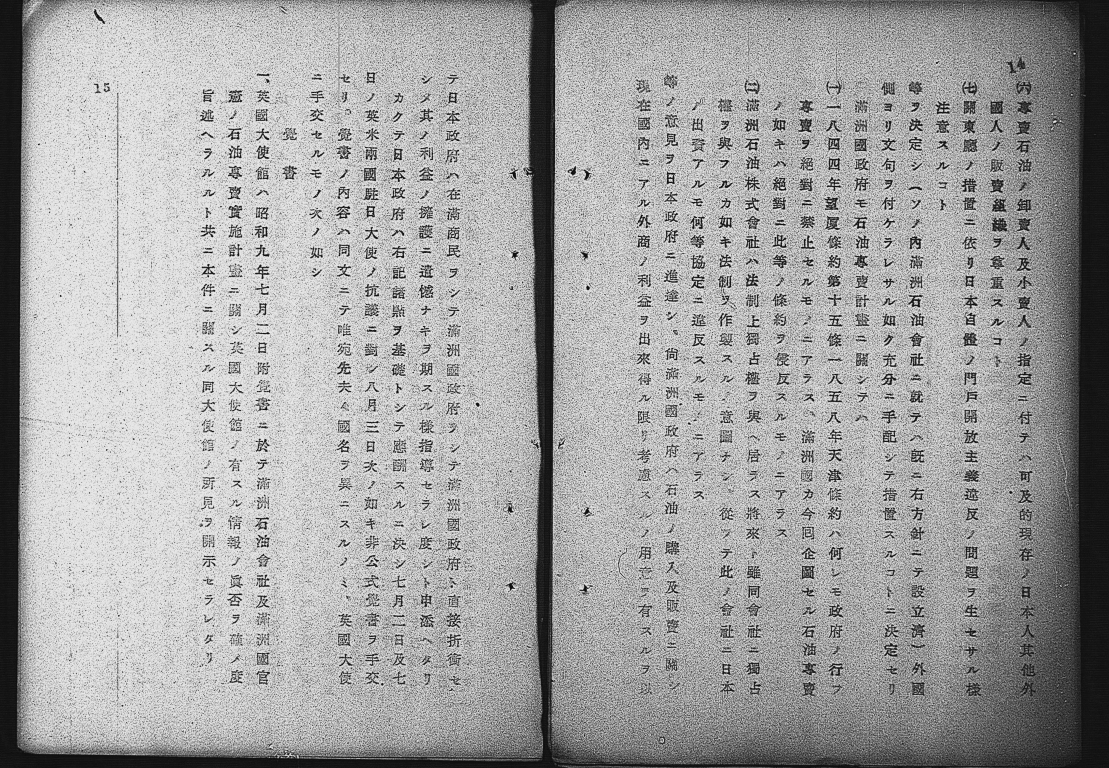 14
㈥ 專賣石油ノ卸賣人及小賣人ノ指定ニ付テハ可及的現存ノ日本人其他外
國人ノ販賣組織ヲ尊重スルコト
㈦ 關東廳ノ措置ニ依リ日本自體ノ門戶開放主義違反ノ問題ヲ生セサル樣
注意スルコト
等ヲ決定シ(ソノ內滿洲石油會社ニ就テハ既ニ右方針ニテ設立濟)外國
側ヨリ文句ヲ付ケラレサル如ク充分ニ手配シテ措置スルコトニ決定セリ
滿洲國政府モ石油專賣計畫ニ關シテハ
㈠ 一八四四年望厦條約第十五條一八五八年天津條約ハ何レモ政府ノ行フ
專賣ヲ絕對ニ禁止セルモノニアラス、滿洲國カ今回企圖セル石油專賣
ノ如キハ絕對ニ此等ノ條約ヲ侵反スルモノニアラス
㈡ 滿洲石油株式會社ハ法制上獨占權ヲ與ヘ居ラス將來ト雖同會社ニ獨占
權ヲ與フルカ如キ法制ヲ作製スルノ意圖ナシ、從ツテ此ノ會社ニ日本
ノ出資アルモ何等協定ニ違反スルモノニアラス
等ノ意見ヲ日本政府ニ進達シ、尙滿洲國政府ハ石油ノ購入及販賣ニ關シ
現在國內ニアル外商ノ利益ヲ出來得ル限リ考慮スルノ用意ヲ有スルヲ以
テ日本政府ハ在滿商民ヲシテ滿洲國政府ヲシテ滿洲國政府ト直接折衝セ
シメ其ノ利益ノ擁護ニ遺憾ナキヲ期スル樣指導セラレ度シト申添ヘタリ
カクテ日本政府ハ右記諸點ヲ基礎トシテ應酬スルニ決シ七月二日及七
日ノ英米兩國駐日大使ノ抗議ニ對シ八月三日次ノ如キ非公式覺書ヲ手交
セリ。覺書ノ內容ハ同文ニテ唯宛先夫々國名ヲ異ニスルノミ、英國大使
ニ手交セルモノ次ノ如シ
覺書
一、英國大使館ハ昭和九年七月二日附覺書ニ於テ滿洲石油會社及滿洲國官
憲ノ石油專賣實施計畫ニ關シ英國大使館ノ有スル情報ノ眞否ヲ確メ度
旨述ヘラルルト共ニ本件ニ關スル同大使館ノ所見ヲ開示セラレタリ
15